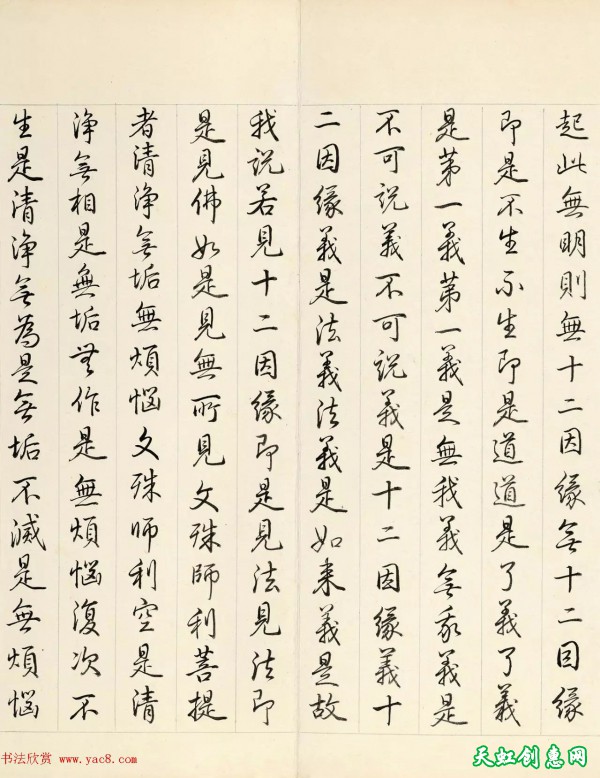 起此無明則無十二因緣無十二因緣
即是不生不生即是道道是了義了義
是第一義第一義是無我義無我義是
不可說義不可說義是十二因緣義十
二因緣義是法義法義是如来義是故
我說若見十二因緣即是見法見法即
是見佛如是見無所見文殊師利菩提
者清淨無垢無煩惱文殊師利空是清
淨無相是無垢無作是無煩惱復次不
生是清淨無為是無垢不滅是無煩惱
书法欣赏 www.yac8.com
天虹创惠网